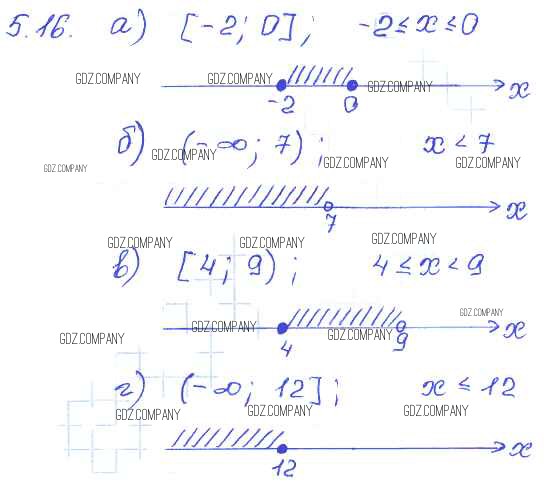 5.16. а) [-2; 0]; -2 ≤ x ≤ 0
GDZ.COMPANY GDZ.COMPANY GDZ.COMPANY
-2 0 x
б) (-∞; 7); x < 7
GDZ.COMPANY GDZ.COMPANY GDZ.COMPANY GDZ.COMPANY
7 x
GDZ.COMPANY GDZ.COMPANY GDZ.COMPANY
в) [4; 9); 4 ≤ x < 9
GDZ.COMPANY GDZ.COMPANY GDZ.COMPANY GDZ.COMPANY
4 9 x
г) (-∞; 12]; x ≤ 12
GDZ.COMPANY GDZ.COMPANY GDZ.COMPANY
12 x